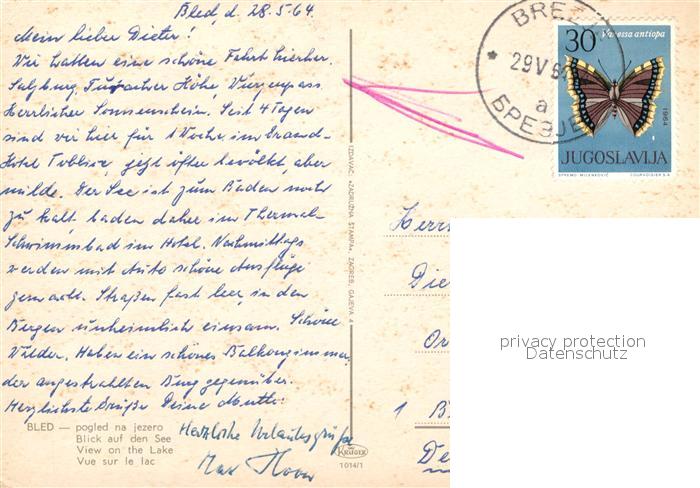 Bled, d. 28.5.64.
Mein lieber Dieter!
Wir hatten eine schöne Fahrt hierher.
Salzburg, Turracher Höhe, Wurzenpass.
Herrlicher Sonnenschein. Seit 4 Tagen
sind wir hier für 1 Woche, im Grand-
Hotel Toblice, jetzt öfter bewölkt, aber
milde. Der See ist zum Baden noch
zu kalt. baden daher im Thermal-
Schwimmbad im Hotel. Nachmittags
werden mit Auto schöne Ausflüge
gemacht. Straßen fast leer, in den
Bergen unheimlich einsam. Schöne
Wälder. Haben ein schönes Balkonzimmer,
der angestrahlten Burg gegenüber.
Herzlichste Grüße Deine Mutti.
Herzliche Urlaubsgrüße
Max
BLED — pogled na jezero
Blick auf den See
View on the Lake
Vue sur le lac
KRÜGER
1014/1
IZDAVAČ »ZADRUŽNA ŠTAMPA«, ZAGREB, GAJEVA 4
BREZJE
29 V 64
a
БРЕЗЈЕ
30
Vanessa antiopa
1964
JUGOSLAVIJA
SPREMO MILENKOVIĆ
COURVOISIER S.A.
Herrn
Die
Or
1 B
De
privacy protection
Datenschutz